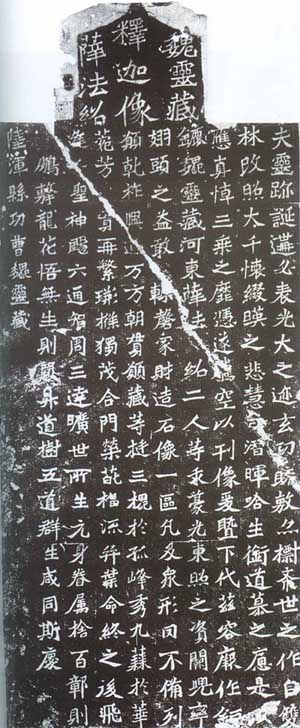 魏靈藏
釋迦像
薛法紹
夫靈跡誕遘必表光大之迹玄功既敷亦標希世之作自
林改照大千懷綴暎之悲慧潛暉唅生銜道慕之是
應真悼三乘之靡憑遂騰空以刊像爰暨下代茲容厥作
魏靈藏河東薛紹二人等求豪光東照之資闕兜率
翅頭之益敢輒磬家財造石像一區凡及衆形罔不備列
願乾祚萬方朝貫願藏等挺三槐於孤峰秀九蕀於華
菀芳再繁荊條獨茂合門榮葩福流奕葉命終之後飛
逢聖神颺六通智周三達曠世所生元身眷屬捨百鄣則
鵬擊龍花悟無生則昇道樹五道群生咸同斯慶
陸渾縣功曹魏靈藏